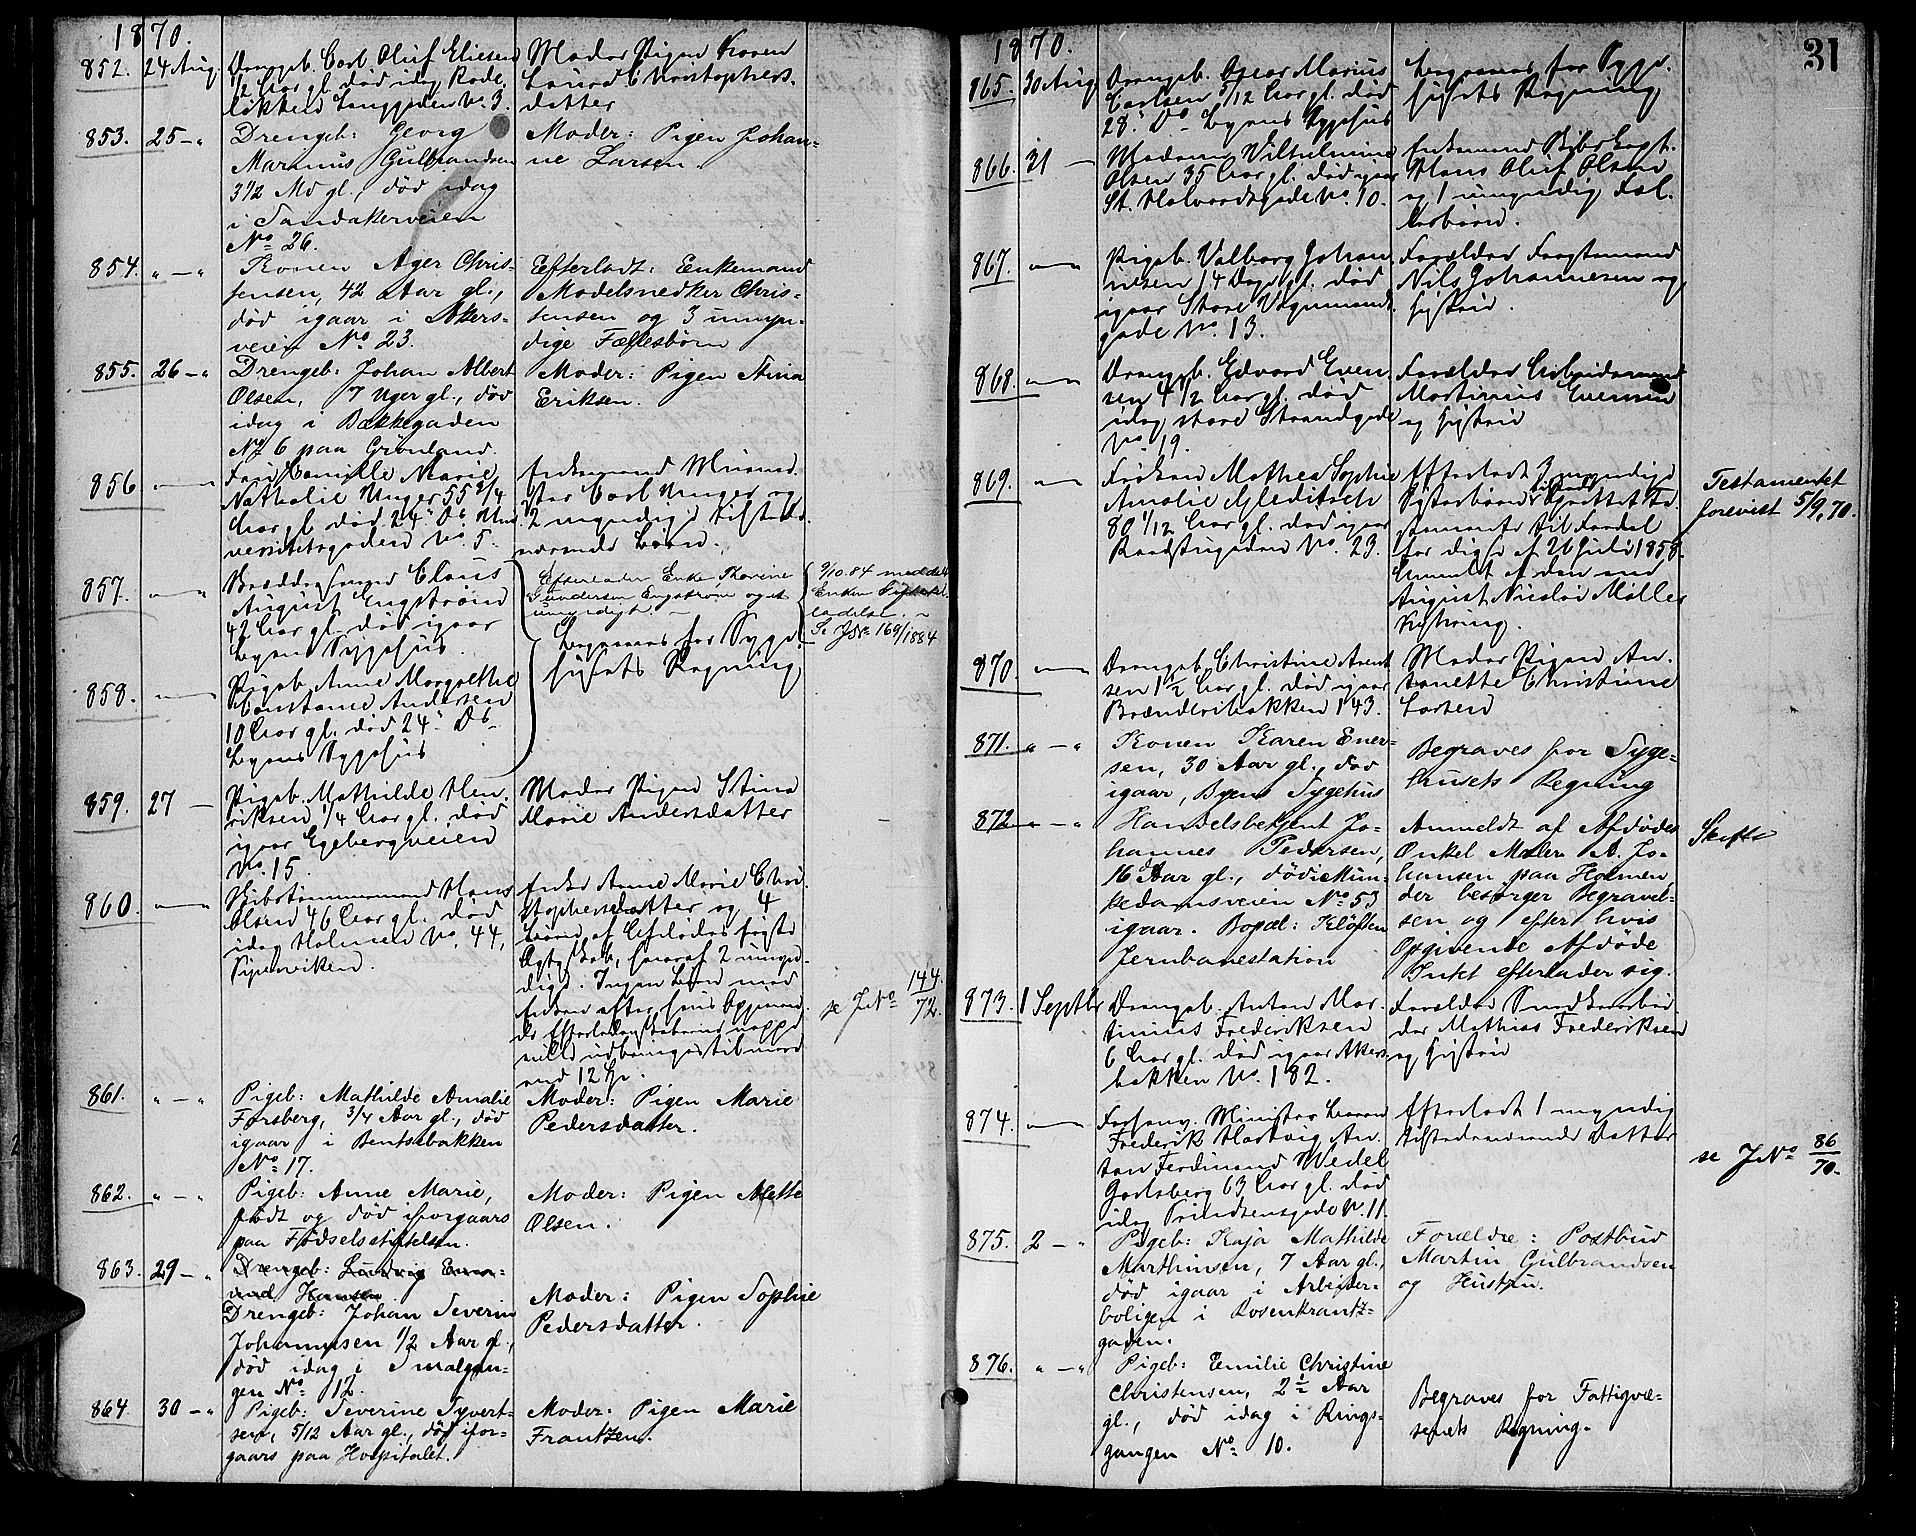 1870.
852. 24 Aug Drengb. Carl Oluf Eliesen
1/2 Aar gl. død idag Rode-
løkken Langgaden No. 3.
Moder Pigen Karen
Laura Christophers-
datter
853. 25 - " Drengeb: Georg
Marinus Gulbrandsen
3 1/2 Md gl., død idag
i Sandakerveien
No 26.
Moder: Pigen Johan-
ne Larsen.
854. " - " Konen Ager Chris-
tensen, 42 Aar gl.,
død igaar i Akers-
veien No 23.
Efterladt: Enkemand
Modelsnedker Chris-
tensen og 3 umyn-
dige Fællesbörn
855. 26 - " Drengeb: Johan Albert
Olsen, 7 Uger gl., død
idag i Bakkegaden
No 6 paa Grönland.
Moder: Pigen Anna
Eriksen.
856. Camille Marie
Nathalie Unger 55 3/4
Aar gl. død 24' Ds. Uni-
versitetsgaden No. 5.
Enkemand
Carl Unger og
2 myndige tilstede-
værende Børn.
857. Claus
August Engström
42 Aar gl. død igaar
Byens Sygehus.
Efterlader Enke Thorine
Gundersen Engström og et
umyndigt. -
9/10.84 meddelt
Enken
ladelse -
Se JNo 169/1884
Begraves for Syge-
husets Regning
858. Pigeb. Anne Margrethe
Constance Andersen
10 Aar gl. død 24' Ds -
Byens Sygehus
859. 27 - Pigeb. Mathilde Hen-
riksen 1/4 Aar gl. død
igaar Egebergveien
No. 15.
Moder Pigen Stina
Marie Andersdatter
860. Skibstømmermand Hans
Olsen 46 Aar gl. død
idag Holmen No. 44,
Pipervigen.
Enke Anne Marie Chri-
stophersdatter og 4
Børn af Afdødes første
Ægteskab, hvoraf 2 umyn-
dige. Ingen Børn med
Enken efter hvis Opgivend-
de Efterladenskaberne neppe
ville udbringes til mere
end 12 Sp.
se JNo 144/72.
861. " - " Pigeb: Mathilde Amalie
Forsberg, 3/4 Aar gl., død
igaar i Bentsebakken
No 17.
Moder: Pigen Marie
Pedersdatter.
862. " - " Pigeb: Anne Marie,
født og død iforgaars
paa Fødselsstiftelsen.
Moder: Pigen Mette
Olsen.
863. 29 - " Drengeb: Ludvig
Hansen
Drengeb: Johan Severin
Johannesen 1/2 Aar gl.,
død idag i Smalgan-
gen No 12.
Moder: Pigen Sophie
Pedersdatter.
864. 30 - " Pigeb: Severine Syvert-
sen, 5/12 Aar gl., død ifor-
gaars paa Hospitalet.
Moder: Pigen Marie
Frantzen.
1870.
31
865. 30 Aug Drengeb. Oscar Marius
Carlsen 5/12 Aar gl. død
28' Ds - Byens Sygehus
Begraves for Syge-
husets Regning
866. 31 - Madame Vilhelmine
Olsen 35 Aar gl. død igaar
St. Halvardsgade No. 10.
Enkemand Skibskapt.
Hans Oluf Olsen
og 1 umyndig Fæl-
lesbarn.
867. Pigeb. Valborg Johan-
nesen 14 Dage gl. død
igaar Store Vognmands-
gade No. 13.
Forældre Fragtemand
Nils Johannesen og
Hustru.
868. Drengeb. Edvard Even-
sen 4 1/2 Aar gl. død
idag store Strandgade
No 19.
Forældre Arbeidsmand
Martinius Evensen
og Hustru
869. Frøken Mathea Sophie
Amalie Gleditsch
80 1/12 Aar gl. død igaar
Raadstugaden No. 23.
Efterladt 3 myndige
Søsterbørn. Oprettet Te-
stamente til Fordel
for disse af 26 Juli 1858.
Anmeldt af den ene
August Nicolai Møller
Testamentet
forevist 5/9, 70.
870. Drengeb. Christine Arent-
sen 1 1/2 Aar gl. død igaar
Brænneribakken 143.
Moder Pigen An-
tonette Christiane
Larsen
871. " - " Konen Karen Ener-
sen, 30 Aar gl., død
igaar, Byens Sygehus
Begraves for Syge-
husets Regning
872. " - " Handelsbetjent Jo-
hannes Pedersen,
16 Aar gl., død i Mun-
kedamsveien No 53
igaar. Bopæl: Kløften
Jernbanestation
Anmeldt af Afdødes
Onkel Maler A. Jo-
hansen paa Holmen,
der besørger Begravel-
sen og efter hvis
Opgivende Afdøde
Intet efterlader sig.
Skifte
873. 1 Septbr Drengeb. Anton Mar-
tinius Frederiksen
6 Aar gl. død igaar Akers-
bakken No. 182.
Forældre
Mathias Frederiksen
og Hustru
874. Forhenv. Minister Baron
Frederik Hartvig An-
ton Ferdinand Wedel
Jarlsberg 63 Aar gl. død
idag Prindsensgade No. 11.
Efterladt 1 myndig
tilstedeværende Datter
se JNo 86/70.
875. 2 - " Pigeb: Kaja Mathilde
Marthinsen, 7 Aar gl.,
død igaar i Arbeider-
boligen i Rosenkrantz-
gaden.
Forældre: Postbud
Martin Gulbrandsen
og Hustru.
876. " - " Pigeb: Emilie Christine
Christensen, 2 1/2 Aar
gl., død idag i Rings-
gangen No 10.
Begraves for Fattigvæ-
senets Regning.